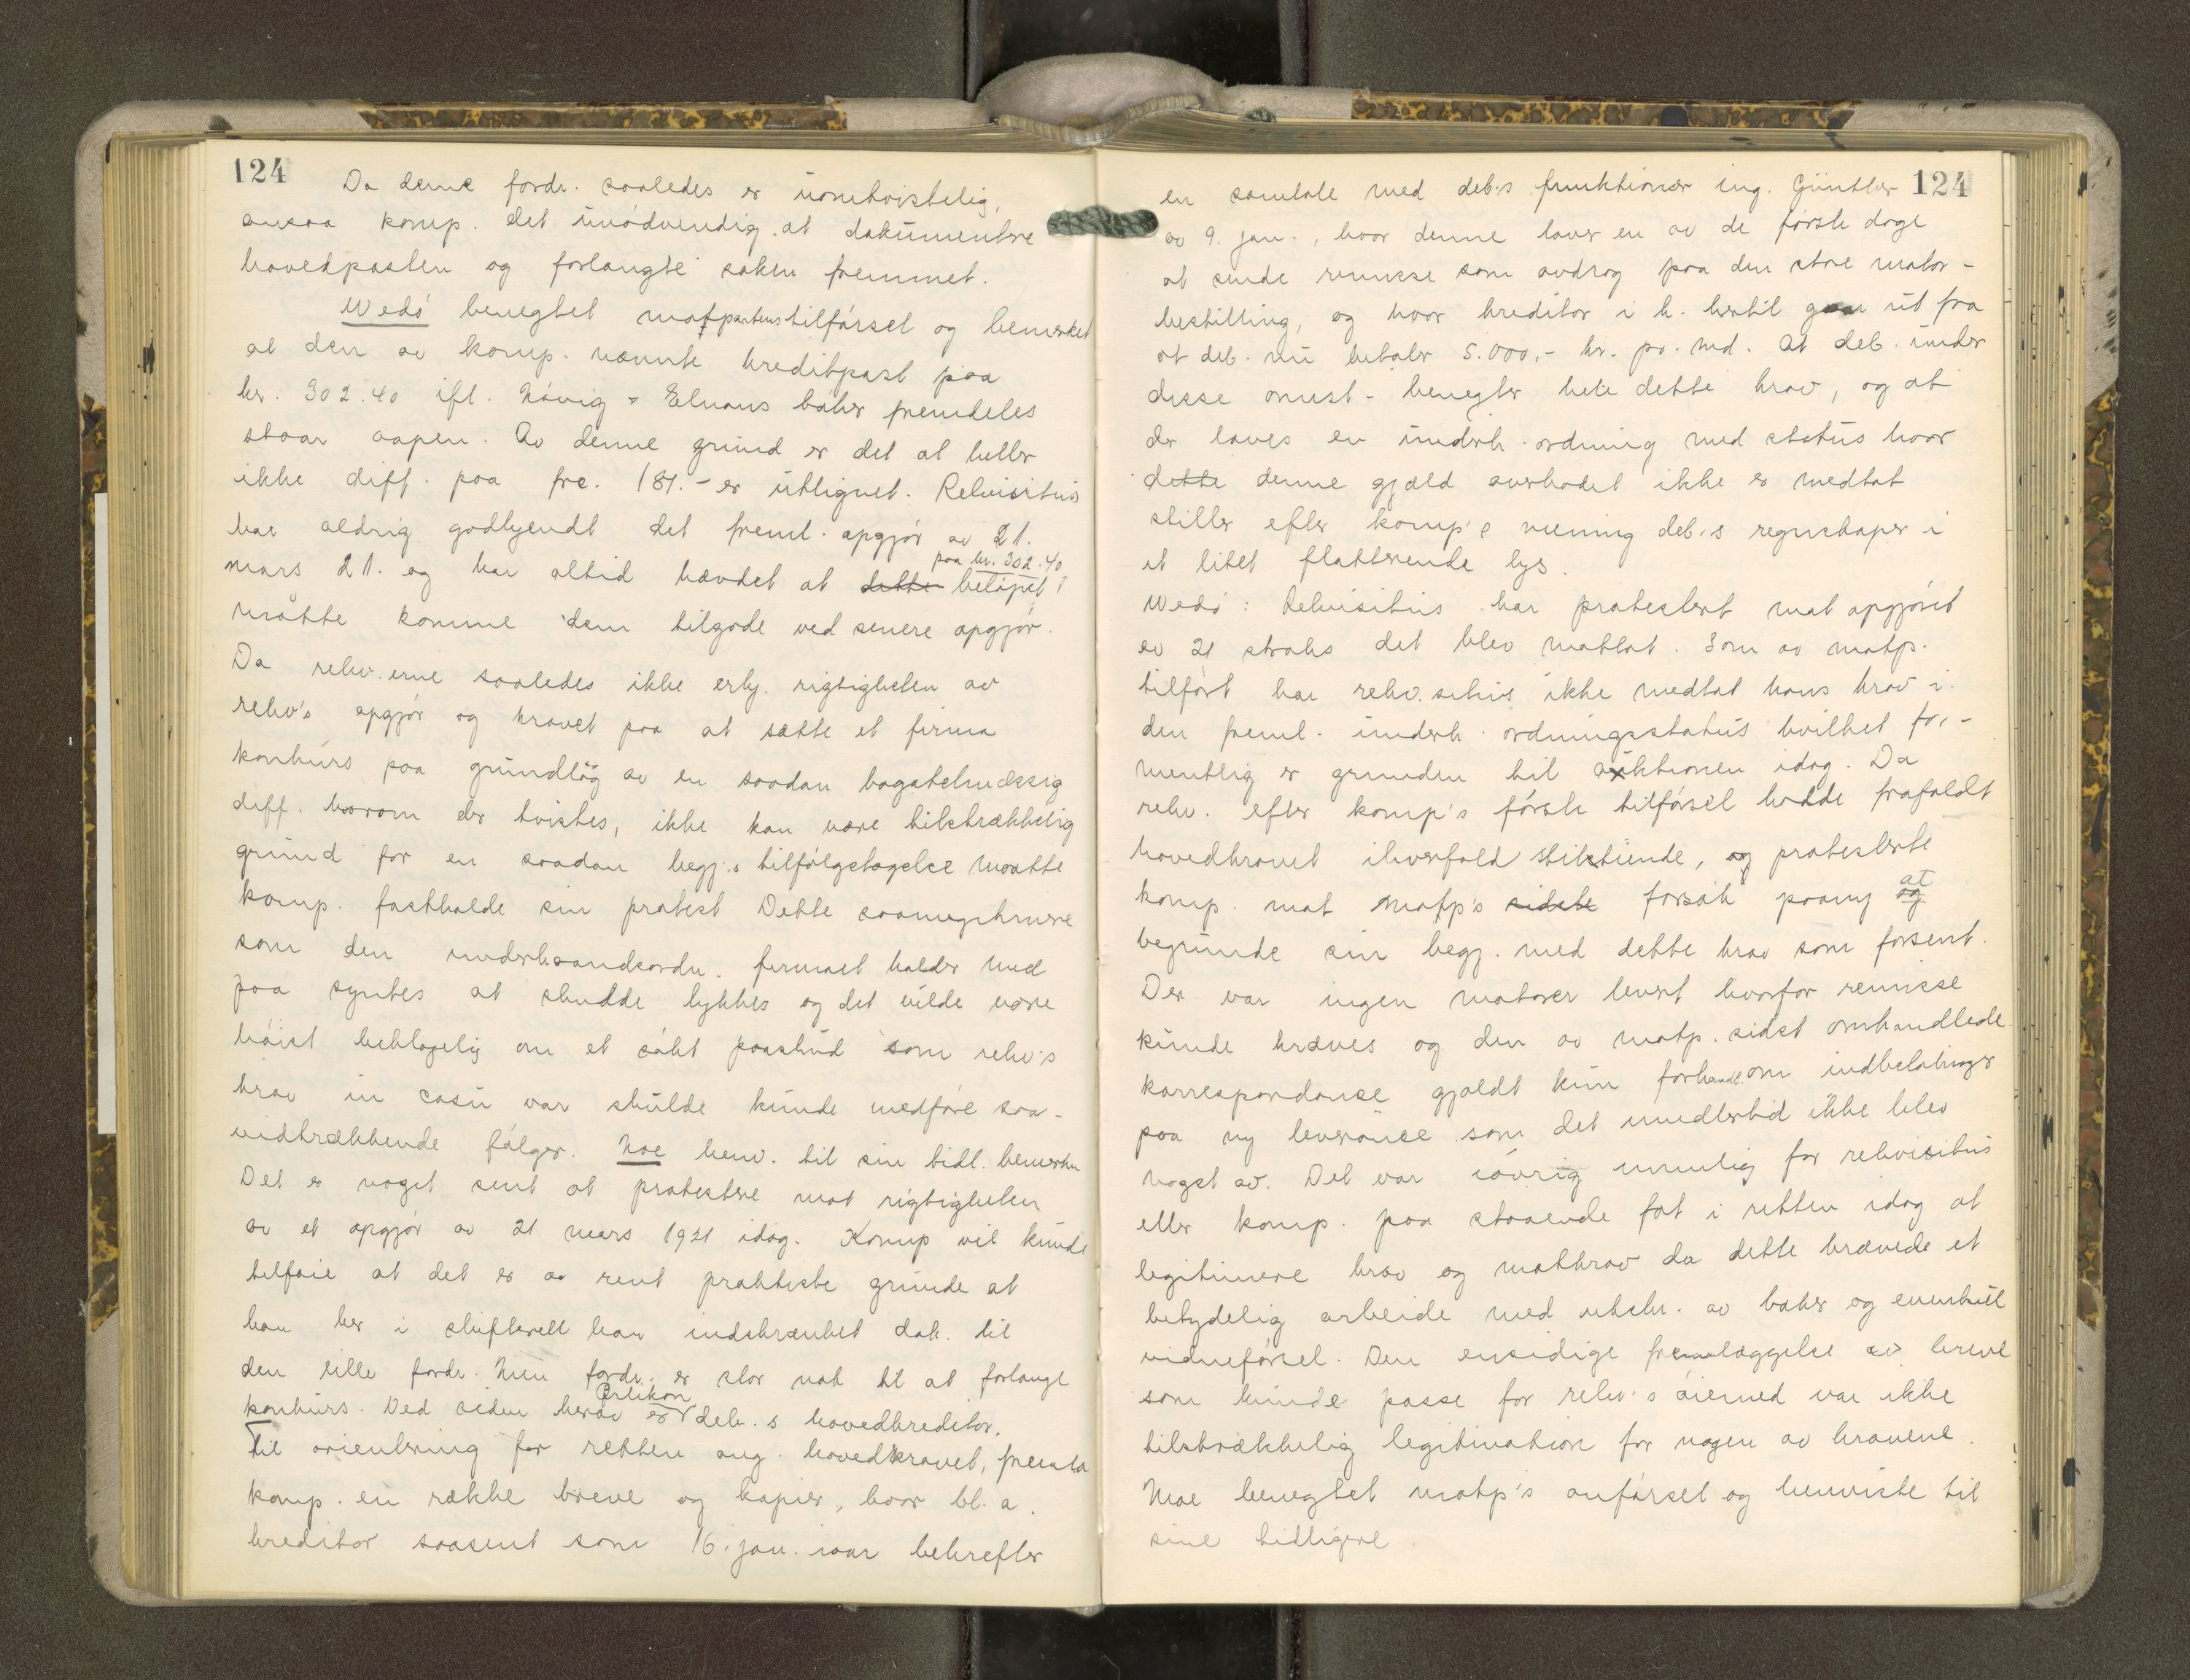 124
Da denne fordr. saaledes er uomtvistelig,
ansaa komp. det unødvendig at dokumentere
hovedposten og forlangte saken fremmet.
Wedø benegtet motpartens tilførsel og bemerket
at den av komp. nævnte kreditpost paa
kr. 302.40 ifl. Elnans bøker fremdeles
staar aapen. Av denne grund er det at heller
ikke diff. paa frc. 181.- er utlignet. Rekvisitus
har aldrig godkjendt det freml. opgjør av 21.
paa kr. 302.40
mars 21. og har altid hævdet at dette beløpet
måtte komme dem tilgode ved senere opgjør.
Da rekv.erne saaledes ikke erkj. rigtigheten av
rekv's opgjør og kravet paa at sætte et firma
konkurs paa grundlag av en saadan bagatelmæssig
diff. hvorom der tvistes, ikke kan være tilstrækkelig
grund for en saadan begj.s tilfølgetagelse maatte
komp. fastholde sin protest Dette saameget mere
som den underhaandsordn. firmaet holder med
paa syntes at skulde lykkes og det vilde være
høist beklagelig om et søkt paaskud som rekv's
krav in casu var skulde kunde medføre saa-
vidtrækkende følger. Moe henv. til sin tidl. bemerkn
Det er noget sent at protestere mot rigtigheten
av et opgjør av 21 mars 1921 idag. Komp vil kunde
tilføie at det er av rent praktiske grunde at
han her i skifterett har indskrænket dok. til
den lille fordr. Men fordr. er stor nok til at forlange
Oerlikon
konkurs. Ved siden herav er deb.s hovedkreditor.
Til orientering for retten ang. hovedkravet, fremla
komp. en række breve og kopier, hvor bl.a.
kreditor saasent som 16. jan. iaar bekrefter
124
en samtale med deb.s funktionær ing. Günther
av 9. jan., hvor denne lover en av de første dage
at sende remisse som avdrag paa den store motor-
bestilling, og hvor kreditor i h. hertil gaar ut fra
at deb. nu betaler 5.000,- kr. pr. md. At deb. under
disse omst. benegter hele dette krav, og at
der laves en underh. ordning med status hvor
dette denne gjæld overhodet ikke er medtat
stiller efter komp's mening deb.s regnskaper i
et litet flatterende lys.
Wedø: Rekvisitus har protestert mot opgjøret
av 21 straks det blev mottat. Som av motp.
tilført har rekv.situs ikke medtat hans krav i
den freml. underh. ordningsstatus hvilket for-
mentlig er grunden til auktionen idag. Da
rekv. efter komp's første tilførsel hadde frafaldt
hovedkravet ihverfald stiltiende, og protesterte
komp. mot motp's sidste forsøk paany og at
begrunde sin begj. med dette krav som forsent.
Der var ingen motorer levert hvorfor remisse
kunde kræves og den av motp. sidst omhandlede
korrespondanse gjaldt kun forhandl. om indbetalinger
paa ny leveranse som det imidlertid ikke blev
noget av. Det var iøvrig umulig for rekvisitus
eller komp. paa staaende fot i retten idag at
legitimere krav og motkrav da dette krævede et
betydelig arbeide med utskr. av bøker og eventuel
vidneførsel. Den ensidige fremlæggelse av breve
som kunde passe for rekv's øiemed var ikke
tilstrækkelig legitimation for nogen av kravene.
Moe benegtet motp's anførsel og henviste til
sine tidligere.